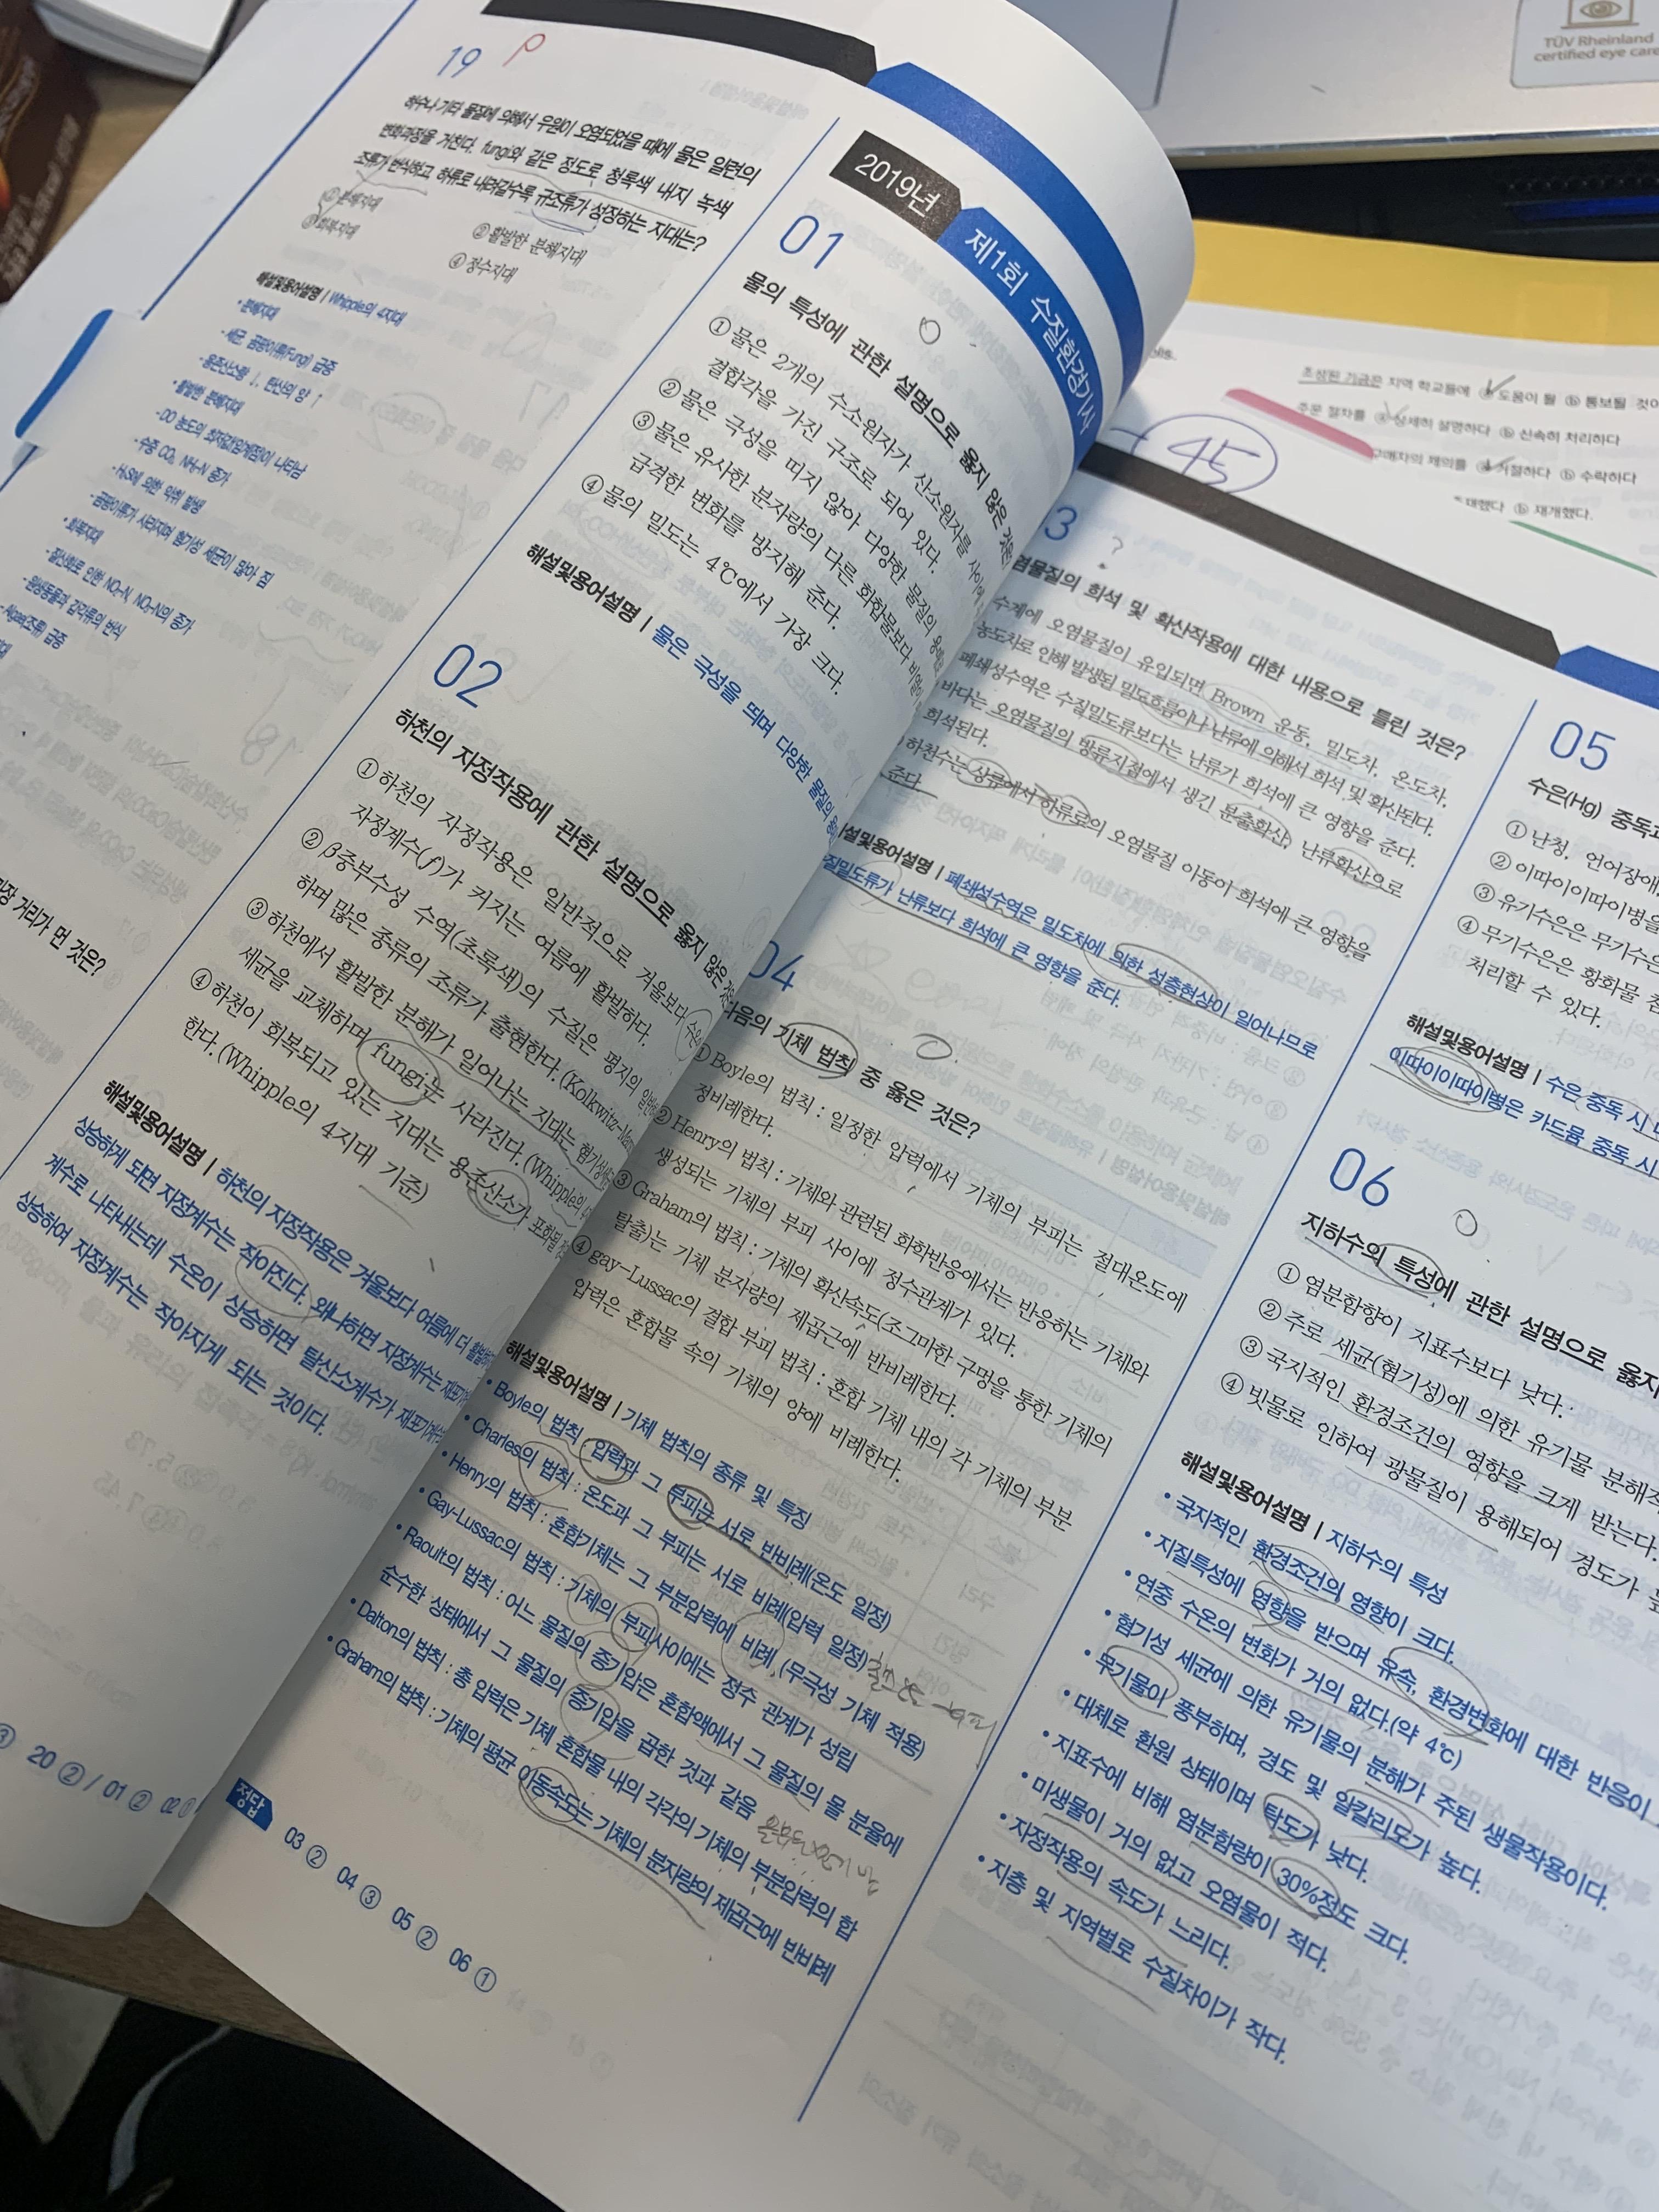 19
하수나 기타 물질에 의해서 우원이 오염되었을 때에 물은 일련의
변화과정을 거친다. fungi와 같은 정도로 청록색 내지 녹색
조류가 번식하고 하류로 내려갈수록 규조류가 성장하는 지대는?
① 분해지대
② 활발한 분해지대
③ 회복지대
④ 정수지대
해설및용어설명 | Whipple의 4지대
• 분해지대
- 세균, 곰팡이류(Fungi) 급증
- 용존산소량 ↓, 탄산의 양 ↑
• 활발한 분해지대
- DO 농도의 최저값(임계점)이 나타남
- 수중 CO₂, NH₃-N 증가
- 곰팡이류가 사라지며 혐기성 세균이 많아 짐
• 회복지대
- 질산화로 인한 NO₂-N, NO₃-N의 증가
- 원생동물과 갑각류의 번식
- 조류 급증
거리가 먼 것은?
20 ② / 01 ② 02 ①
2019년
제1회 수질환경기사
01
물의 특성에 관한 설명으로 옳지 않은 것은
① 물은 2개의 수소원자가 산소원자를 사이에
결합각을 가진 구조로 되어 있다.
② 물은 극성을 띠지 않아 다양한 물질의 용매로
③ 물은 유사한 분자량의 다른 화합물보다 비열이
급격한 변화를 방지해 준다.
④ 물의 밀도는 4℃에서 가장 크다.
해설및용어설명 | 물은 극성을 띄며 다양한 물질의
02
하천의 자정작용에 관한 설명으로 옳지 않은
① 하천의 자정작용은 일반적으로 겨울보다 수온
자정계수(f)가 커지는 여름에 활발하다.
② β중부수성 수역(초록색)의 수질은 평지의 일반
하며 많은 종류의 조류가 출현한다.(Kolkwitz-
③ 하천에서 활발한 분해가 일어나는 지대는 혐기성
세균을 교체하며 fungi는 사라진다.(Whipple의
④ 하천이 회복되고 있는 지대는 용존산소가 포화될
한다.(Whipple의 4지대 기준)
해설및용어설명 | 하천의 자정작용은 겨울보다 여름에 더
상승하게 되면 자정계수는 작아진다. 왜냐하면 자정계수는
계수로 나타내는데 수온이 상승하면 탈산소계수가 재포기계수
상승하여 자정계수는 작아지게 되는 것이다.
3 ?
염물질의 희석 및 확산작용에 대한 내용으로 틀린 것은?
수계에 오염물질이 유입되면 Brown 운동, 밀도차, 온도차,
농도차로 인해 발생된 밀도흐름이나 난류에 의해서 희석 및 확산된다.
폐쇄성수역은 수질밀도류보다는 난류가 희석에 큰 영향을 준다.
바다는 오염물질의 방류지점에서 생긴 분출확산, 난류확산으로
희석된다.
하천수는 상류에서 하류로의 오염물질 이동이 희석에 큰 영향을
준다.
해설및용어설명 | 폐쇄성수역은 밀도차에 의한 성층현상이 일어나므로
질밀도류가 난류보다 희석에 큰 영향을 준다.
04
다음의 기체 법칙 중 옳은 것은?
① Boyle의 법칙 : 일정한 압력에서 기체의 부피는 절대온도에
정비례한다.
② Henry의 법칙 : 기체와 관련된 화학반응에서는 반응하는 기체와
생성되는 기체의 부피 사이에 정수관계가 있다.
③ Graham의 법칙 : 기체의 확산속도(조그마한 구멍을 통한 기체의
탈출)는 기체 분자량의 제곱근에 반비례한다.
④ gay-Lussac의 결합 부피 법칙 : 혼합 기체 내의 각 기체의 부분
압력은 혼합물 속의 기체의 양에 비례한다.
해설및용어설명 | 기체 법칙의 종류 및 특징
• Boyle의 법칙 : 압력과 그 부피는 서로 반비례(온도 일정)
• Charles의 법칙 : 온도과 그 부피는 서로 비례(압력 일정)
• Henry의 법칙 : 혼합기체는 그 부분압력에 비례 (무극성 기체 적용)
• Gay-Lussac의 법칙 : 기체의 부피사이에는 정수 관계가 성립
• Raoult의 법칙 : 어느 물질의 증기압은 혼합액에서 그 물질의 몰 분율에
순수한 상태에서 그 물질의 증기압을 곱한 것과 같음
• Dalton의 법칙 : 총 압력은 기체 혼합물 내의 각각의 기체의 부분압력의 합
• Graham의 법칙 : 기체의 평균 이동속도는 기체의 분자량의 제곱근에 반비례
정답
03 ② 04 ③ 05 ② 06 ①
05
수은(Hg) 중독과
① 난청, 언어장애,
② 이따이이따이병을
③ 유기수은은 무기수은
④ 무기수은은 황화물 침
처리할 수 있다.
해설및용어설명 | 수은 중독 시
이따이이따이병은 카드뮴 중독 시
06
지하수의 특성에 관한 설명으로 옳지
① 염분함량이 지표수보다 낮다.
② 주로 세균(혐기성)에 의한 유기물 분해작
③ 국지적인 환경조건의 영향을 크게 받는다.
④ 빗물로 인하여 광물질이 용해되어 경도가
해설및용어설명 | 지하수의 특성
• 국지적인 환경조건의 영향이 크다.
• 지질특성에 영향을 받으며 유속, 환경변화에 대한 반응이
• 연중 수온의 변화가 거의 없다.(약 4℃)
• 혐기성 세균에 의한 유기물의 분해가 주된 생물작용이다.
• 무기물이 풍부하며, 경도 및 알칼리도가 높다.
• 대체로 환원 상태이며 탁도가 낮다.
• 지표수에 비해 염분함량이 30%정도 크다.
• 미생물이 거의 없고 오염물이 적다.
• 자정작용의 속도가 느리다.
• 지층 및 지역별로 수질차이가 작다.
TÜV Rheinland
certified eye care
45
조성된 기금은 지역 학교들에 ⓐ 도움이 될 ⓑ 통보될 것이
주문 절차를 ⓐ 상세히 설명하다 ⓑ 신속히 처리하다
구매자의 제의를 ⓐ 거절하다 ⓑ 수락하다
대했다 ⓑ 재개했다.